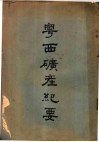 粵西礦產紀要